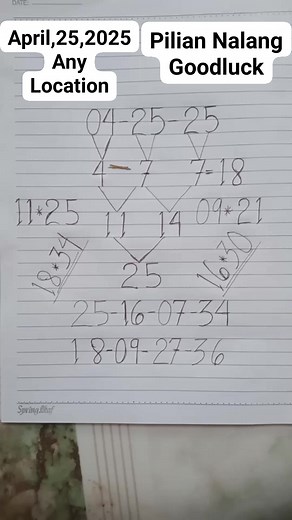 DATE:
April,25,2025
Any
Location
Pilian Nalang
Goodluck
04-25-25
4-7 7=18
11*25 11 14 09*21
18*34 25 16*30
25-16-07-34
18-09-27-36
Spring Leaf